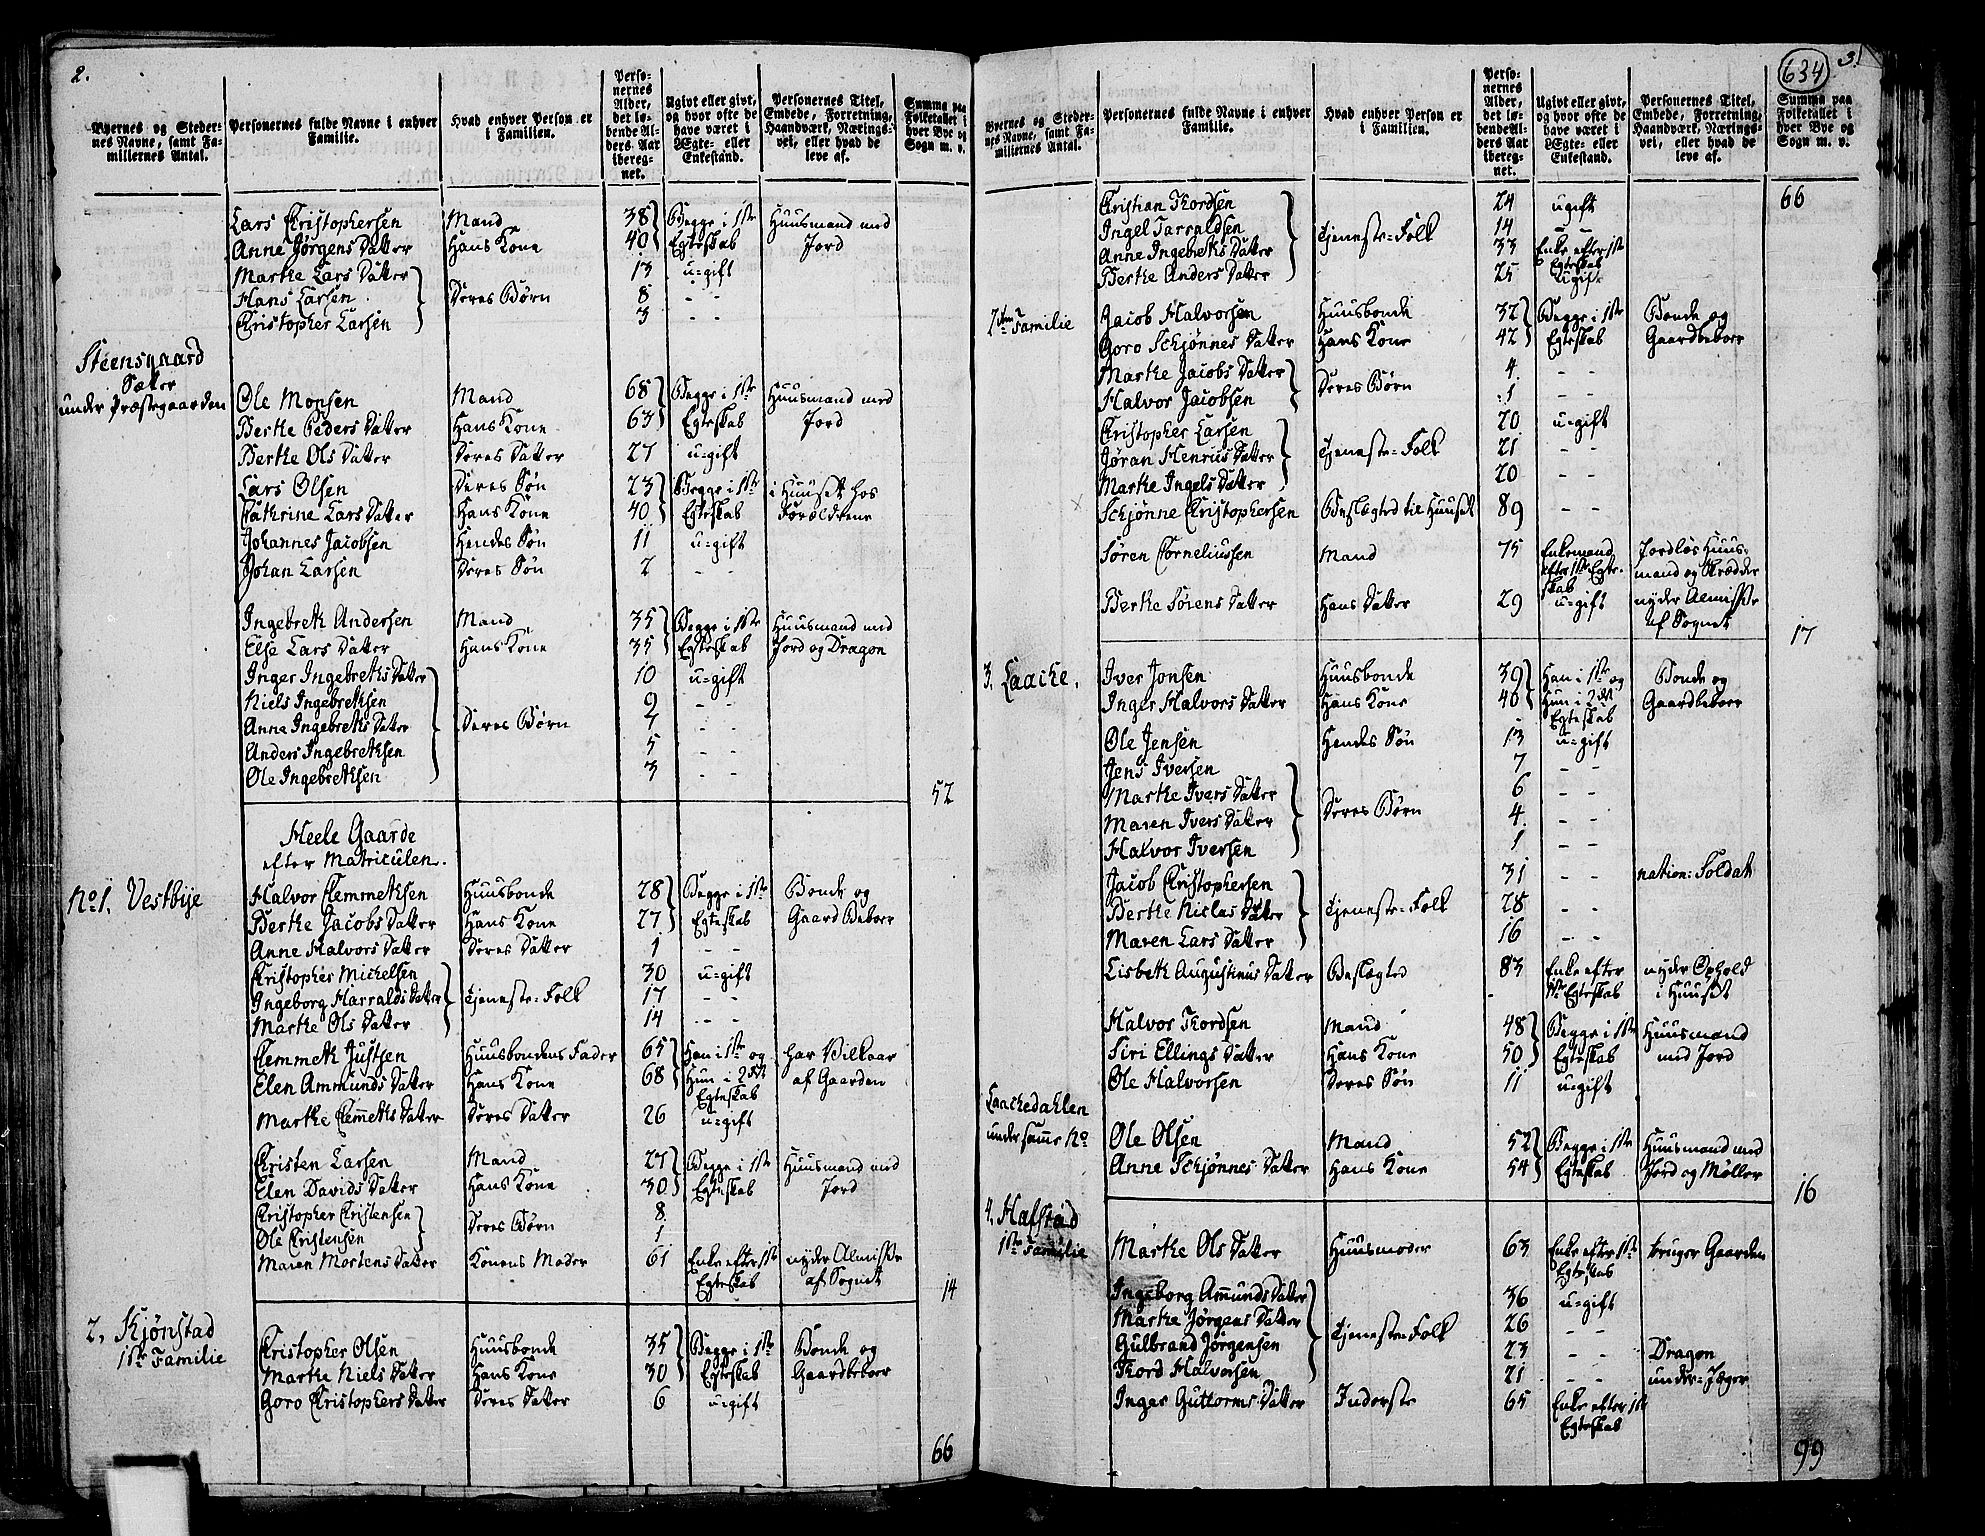 2.
Byernes og Stedernes Navne, samt Familiernes Antal.
Personernes fulde Navne i enhver Familie.
Hvad enhver Person er i Familien.
Personernes Alder, det løbende Alders Aar iberegnet.
Ugivt eller givt, og hvor ofte de have været i Ægte- eller Enkestand.
Personernes Titel, Embede, Forretning, Haandværk, Næringsvei, eller hvad de leve af.
Summa paa Folketallet i hver Bye og Sogn m. v.
Lars Christophersen Mand 38 Begge i 1ste Huusmand med
Anne Jørgens Datter Hans Kone 40 Egteskab Jord
Marthe Lars Datter 13 u=gift
Hans Larsen Deres Børn 8 - -
Christopher Larsen 3 - -
Steensgaard
Sæter
under Præstegaarden
Ole Monsen Mand 68 Begge i 1ste Huusmand med
Berthe Peders Datter Hans Kone 63 Egteskab Jord
Berthe Ols Datter Deres Datter 27 u=gift
Lars Olsen Deres Søn 23 Begge i 1ste i Huuset hos
Cathrine Lars Datter Hans Kone 40 Egteskab Forældrene
Johannes Jacobsen Hendes Søn 11 u=gift
Johan Larsen Deres Søn 2 - -
Ingebreth Andersen Mand 35 Begge i 1ste Huusmand med
Else Lars Datter Hans Kone 35 Egteskab Jord og Dragon
Inger Ingebreths Datter 10 u=gift
Niels Ingebrethsen 9 - -
Anne Ingebreths Datter Deres Børn 7
Anders Ingebrethsen 5 - -
Ole Ingebrethsen 3 - -
52
Heele Gaarde
efter Matriculen.
No 1. Vestbye
Halvor Clemmethsen Huusbonde 28 Begge i 1ste Bonde og
Berthe Jacobs Datter Hans Kone 27 Egteskab Gaard Beboer
Anne Halvors Datter Deres Datter 1 - -
Christopher Michelsen 30 u=gift
Ingeborg Harralds Datter Tjeneste=Folk 17 - -
Marthe Ols Datter 14 - -
Clemmeth Justsen Huusbondens Fader 65 Han i 1ste og har Vilkaar
Elen Ammunds Datter Hans Kone 68 Hun i 2det af Gaarden
Egteskab
Marthe Clemeths Datter Deres Datter 26 u=gift
Christen Larsen Mand 27 Begge i 1ste Huusmand med
Elen Davids Datter Hans Kone 30 Egteskab Jord
Christopher Christensen Deres Børn 8
Ole Christensen 1
Maren Mortens Datter Konens Moder 61 Enke efter 1ste nyder Almisse
Egteskab af Sognet
14
2. Skjønstad
1ste Familie
Christopher Olsen Huusbonde 35 Begge i 1ste Bonde og
Marthe Niels Datter Hans Kone 30 Egteskab Gaardbeboer
Goro Christophers Datter Deres Datter 6 u=gift
66
634
3.
Byernes og Stedernes Navne, samt Familiernes Antal.
Personernes fulde Navne i enhver Familie.
Hvad enhver Person er i Familien.
Personernes Alder, det løbende Alders Aar iberegnet.
Ugivt eller givt, og hvor ofte de have været i Ægte- eller Enkestand.
Personernes Titel, Embede, Forretning, Haandværk, Næringsvei, eller hvad de leve af.
Summa paa Folketallet i hver Bye og Sogn m. v.
66
Christian Thordsen 24 ugift
Ingel Tarraldsen Tjeneste=Folk 14 - -
Anne Ingebreths Datter 33 Enke efter 1ste
Egteskab
Berthe Anders Datter 25 ugift
2den Familie Jacob Halvorsen Huusbonde 32 Begge i 1ste Bonde og
Goro Schjønnes Datter Hans Kone 42 Egteskab Gaardbeboer
Marthe Jacobs Datter Deres Børn 4 - -
Halvor Jacobsen 1 - -
Christopher Larsen 20 u=gift
Jøran Henrius Datter Tjeneste=Folk 21 - -
Marthe Ingels Datter 20 - -
Schjønne Christophersen Beslægted til Huuset 89 - -
Søren Corneliussen Mand 75 Enkemand Jordløs Huus-
efter 1ste Egte- mand og Skrædder
skab
Berthe Sørens Datter Hans Datter 29 u=gift nyder Almisse
af Sognet
17
3. Laache.
Iver Jonsen Huusbonde 39 Han i 1ste og Bonde og
Inger Halvors Datter Hans Kone 40 Hun i 2det Gaardbeboer
Egteskab
Ole Jensen Hendes Søn 13 u=gift
Jens Iversen 7 - -
Marthe Ivers Datter Deres Børn 6 - -
Maren Ivers Datter 4 - -
Halvor Iversen 1 - -
Jacob Christophersen 31 - - nation: Soldat
Berthe Niclas Datter Tjeneste=Folk 28 - -
Maren Lars Datter 16 - -
Lisbeth Augustinus Datter Beslægted 83 Enke efter nyder Ophold
1ste Egteskab i Huuset
Halvor Thordsen Mand 48 Begge i 1ste Huusmand
Siri Ellings Datter Hans Kone 50 Egteskab med Jord
Ole Halvorsen Deres Søn 11 u=gift
Laachedahlen
under samme No
Ole Olsen Mand 52 Begge i 1ste Huusmand med
Anne Schjønnes Datter Hans Kone 54 Egteskab Jord og Møller
16
4. Hafstad
1ste Familie
Marthe Ols Datter Huusmoder 63 Enke efter 1ste bruger Gaarden
Egteskab
Ingeborg Amunds Datter 36 u=gift
Marthe Jørgens Datter Tjeneste=Folk 26 - -
Gulbrand Jørgensen 23 - - Dragon
Thord Halvorsen 21 - - under=Jæger
Inger Guttorms Datter Inderste 65 Enke efter 1ste
Egteskab
99